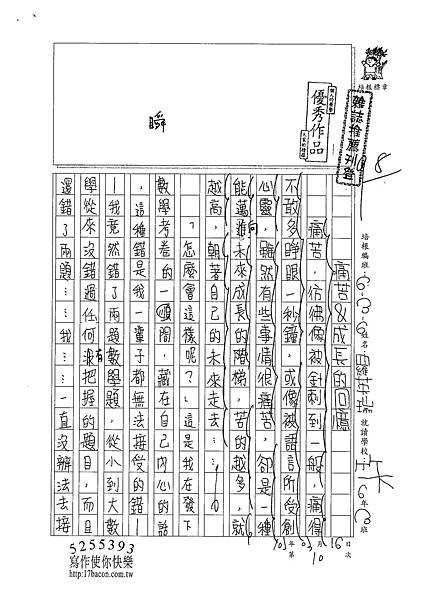 培根標章
雜誌推薦刊登
個人的榮譽
優秀作品
大家的榜樣
瞬
8
培根編班
姓名
羅苡瑞
就讀學校
6年
班
16日
月
次
第10
痛苦&成長的回應
痛苦，彷彿像被針刺到一般，痛得
不敢多睜眼一秒鐘，或像被語言所受創
心靈，雖然有些事情很痛苦，卻是一種
能邁向未來成長的階梯，苦的越多，就
越高，朝著自己的未來走去……。
？怎麼會這樣呢？」這是我在發下
數學考卷的一瞬間，藏在自己內心的話
，這種錯是我一輩子都無法接受的錯—
—我竟然錯了兩題數學題，從小到大數
學從來沒錯過任何沒有把握的題目，而且
還錯了兩題……我……一直沒辦法去接
5255393
寫作使你快樂
http://17bacon.com.tw